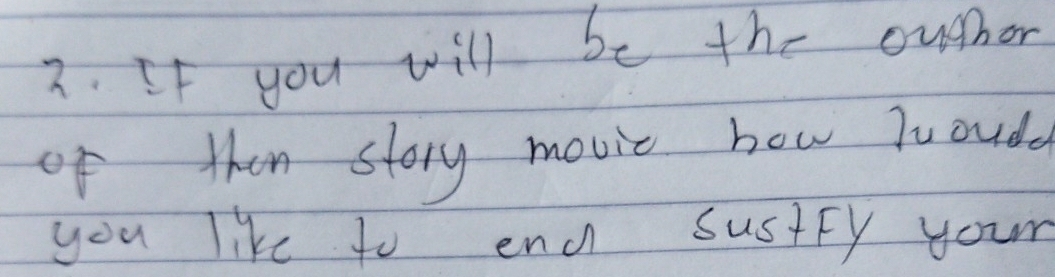 2. If you will be the outhor
of then story movie how would
you like to end sustfy your